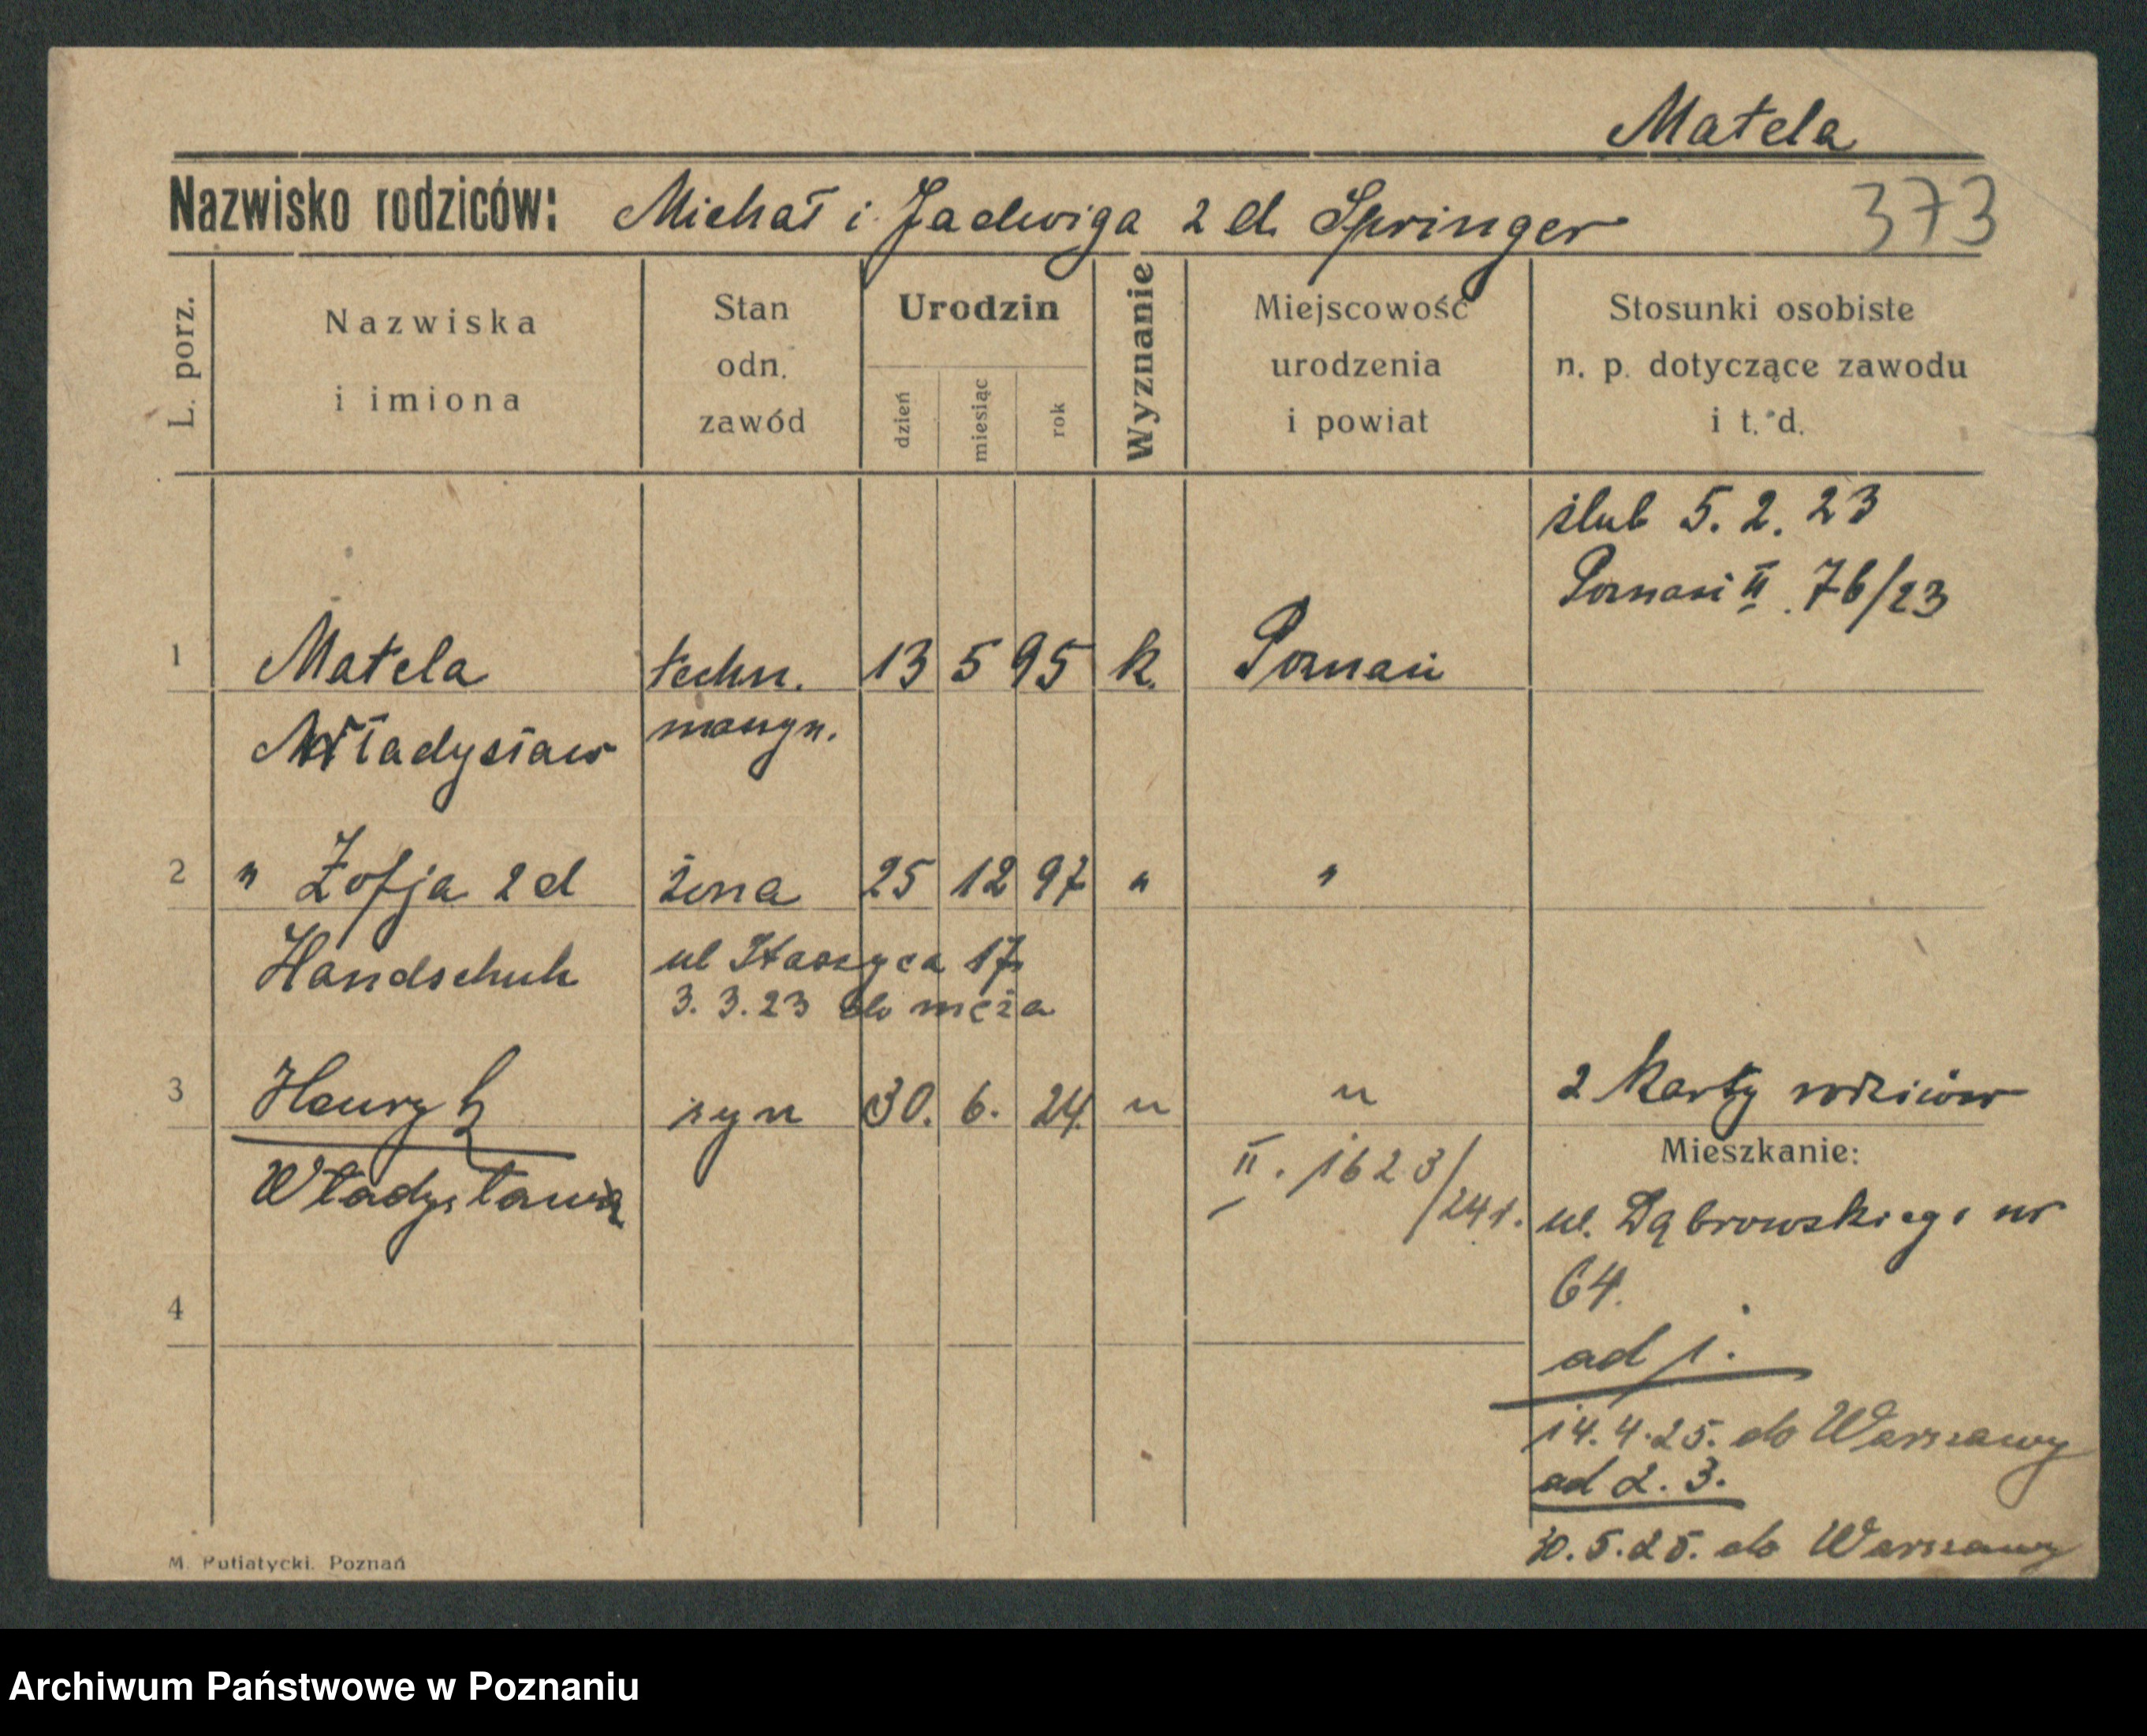 Matela
Nazwisko rodziców: Michał i Jadwiga z d. Springer 373
L. porz.
Nazwiska
i imiona
Stan
odn.
zawód
Urodzin
dzień
miesiąc
rok
Wyznanie
Miejscowość
urodzenia
i powiat
Stosunki osobiste
n. p. dotyczące zawodu
i t. d.
ślub 5. 2. 23
Poznań II. 76/23
1 Matela techn. 13 5 95 k. Poznań
Władysław maszyn.
2 " Zofja z d żona 25 12 97 " "
Handschuh ul Staszyca 17
3. 3. 23 do męża
3 Henryk syn 30. 6. 24. " " 2 karty rodziców
Władysława II. 1623/24 r.
Mieszkanie:
ul. Dąbrowskiego nr
64.
4
ad 1.
14. 4. 25. do Warszawy
ad 2. 3.
30. 5. 25. do Warszawy
M. Putiatycki. Poznań
Archiwum Państwowe w Poznaniu